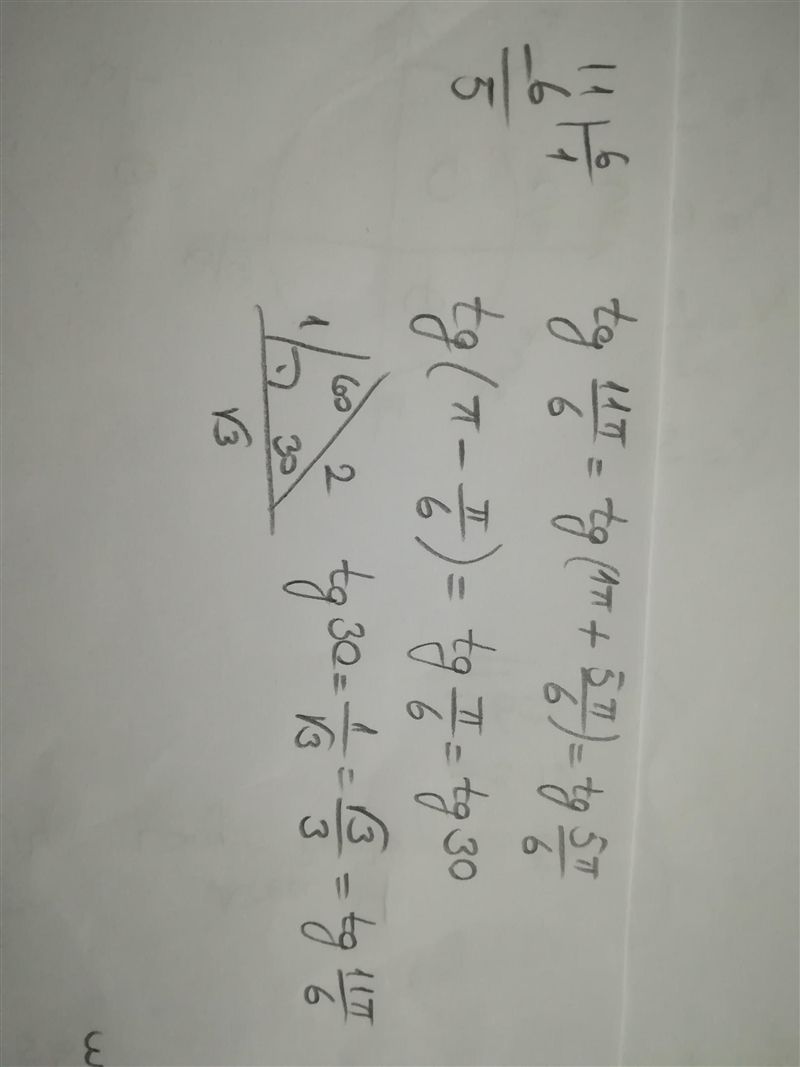 11 | 6
-6   1
5
tg 11π/6 = tg (1π + 5π/6) = tg 5π/6
tg (π - π/6) = tg π/6 = tg 30
1 60 2
30
√3
tg 30 = 1/√3 = √3/3 = tg 11π/6
3